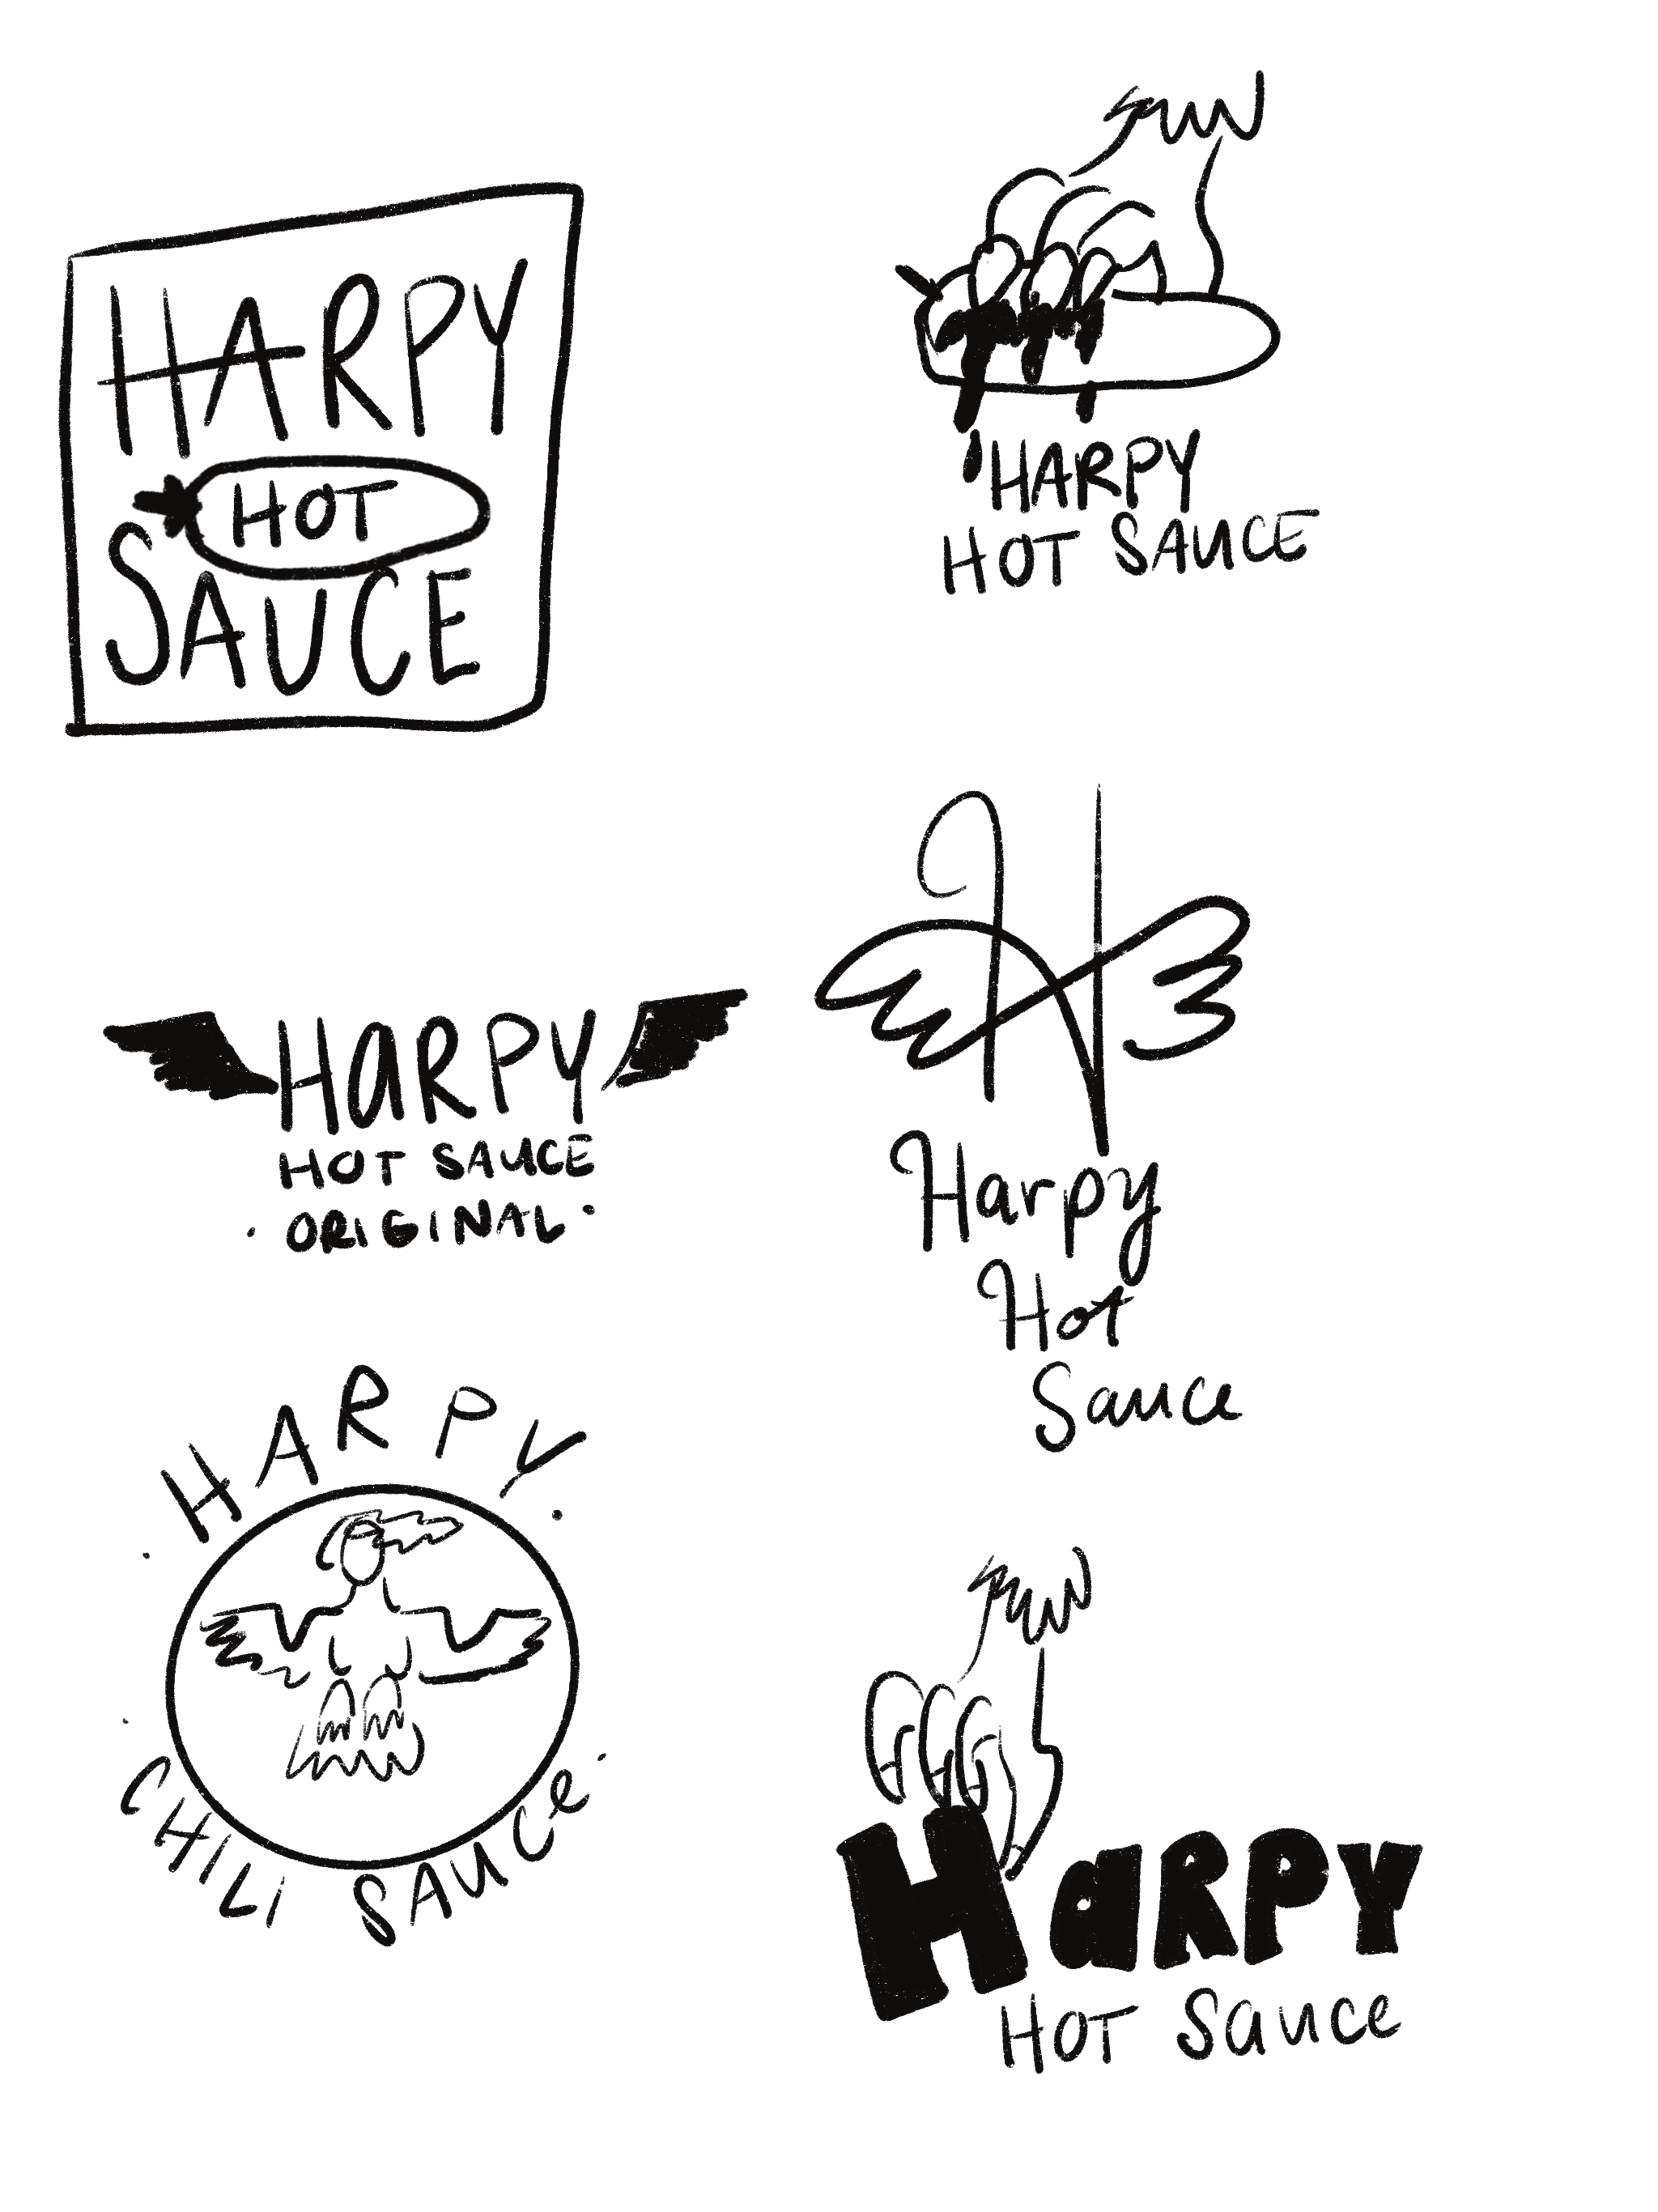 HARPY
HOT
SAUCE
HARPY
HOT SAUCE
HARPY
HOT SAUCE
• ORIGINAL •
H
Harpy
Hot
Sauce
• HARPY •
• CHILI SAUCE •
HARPY
HOT SAUCE